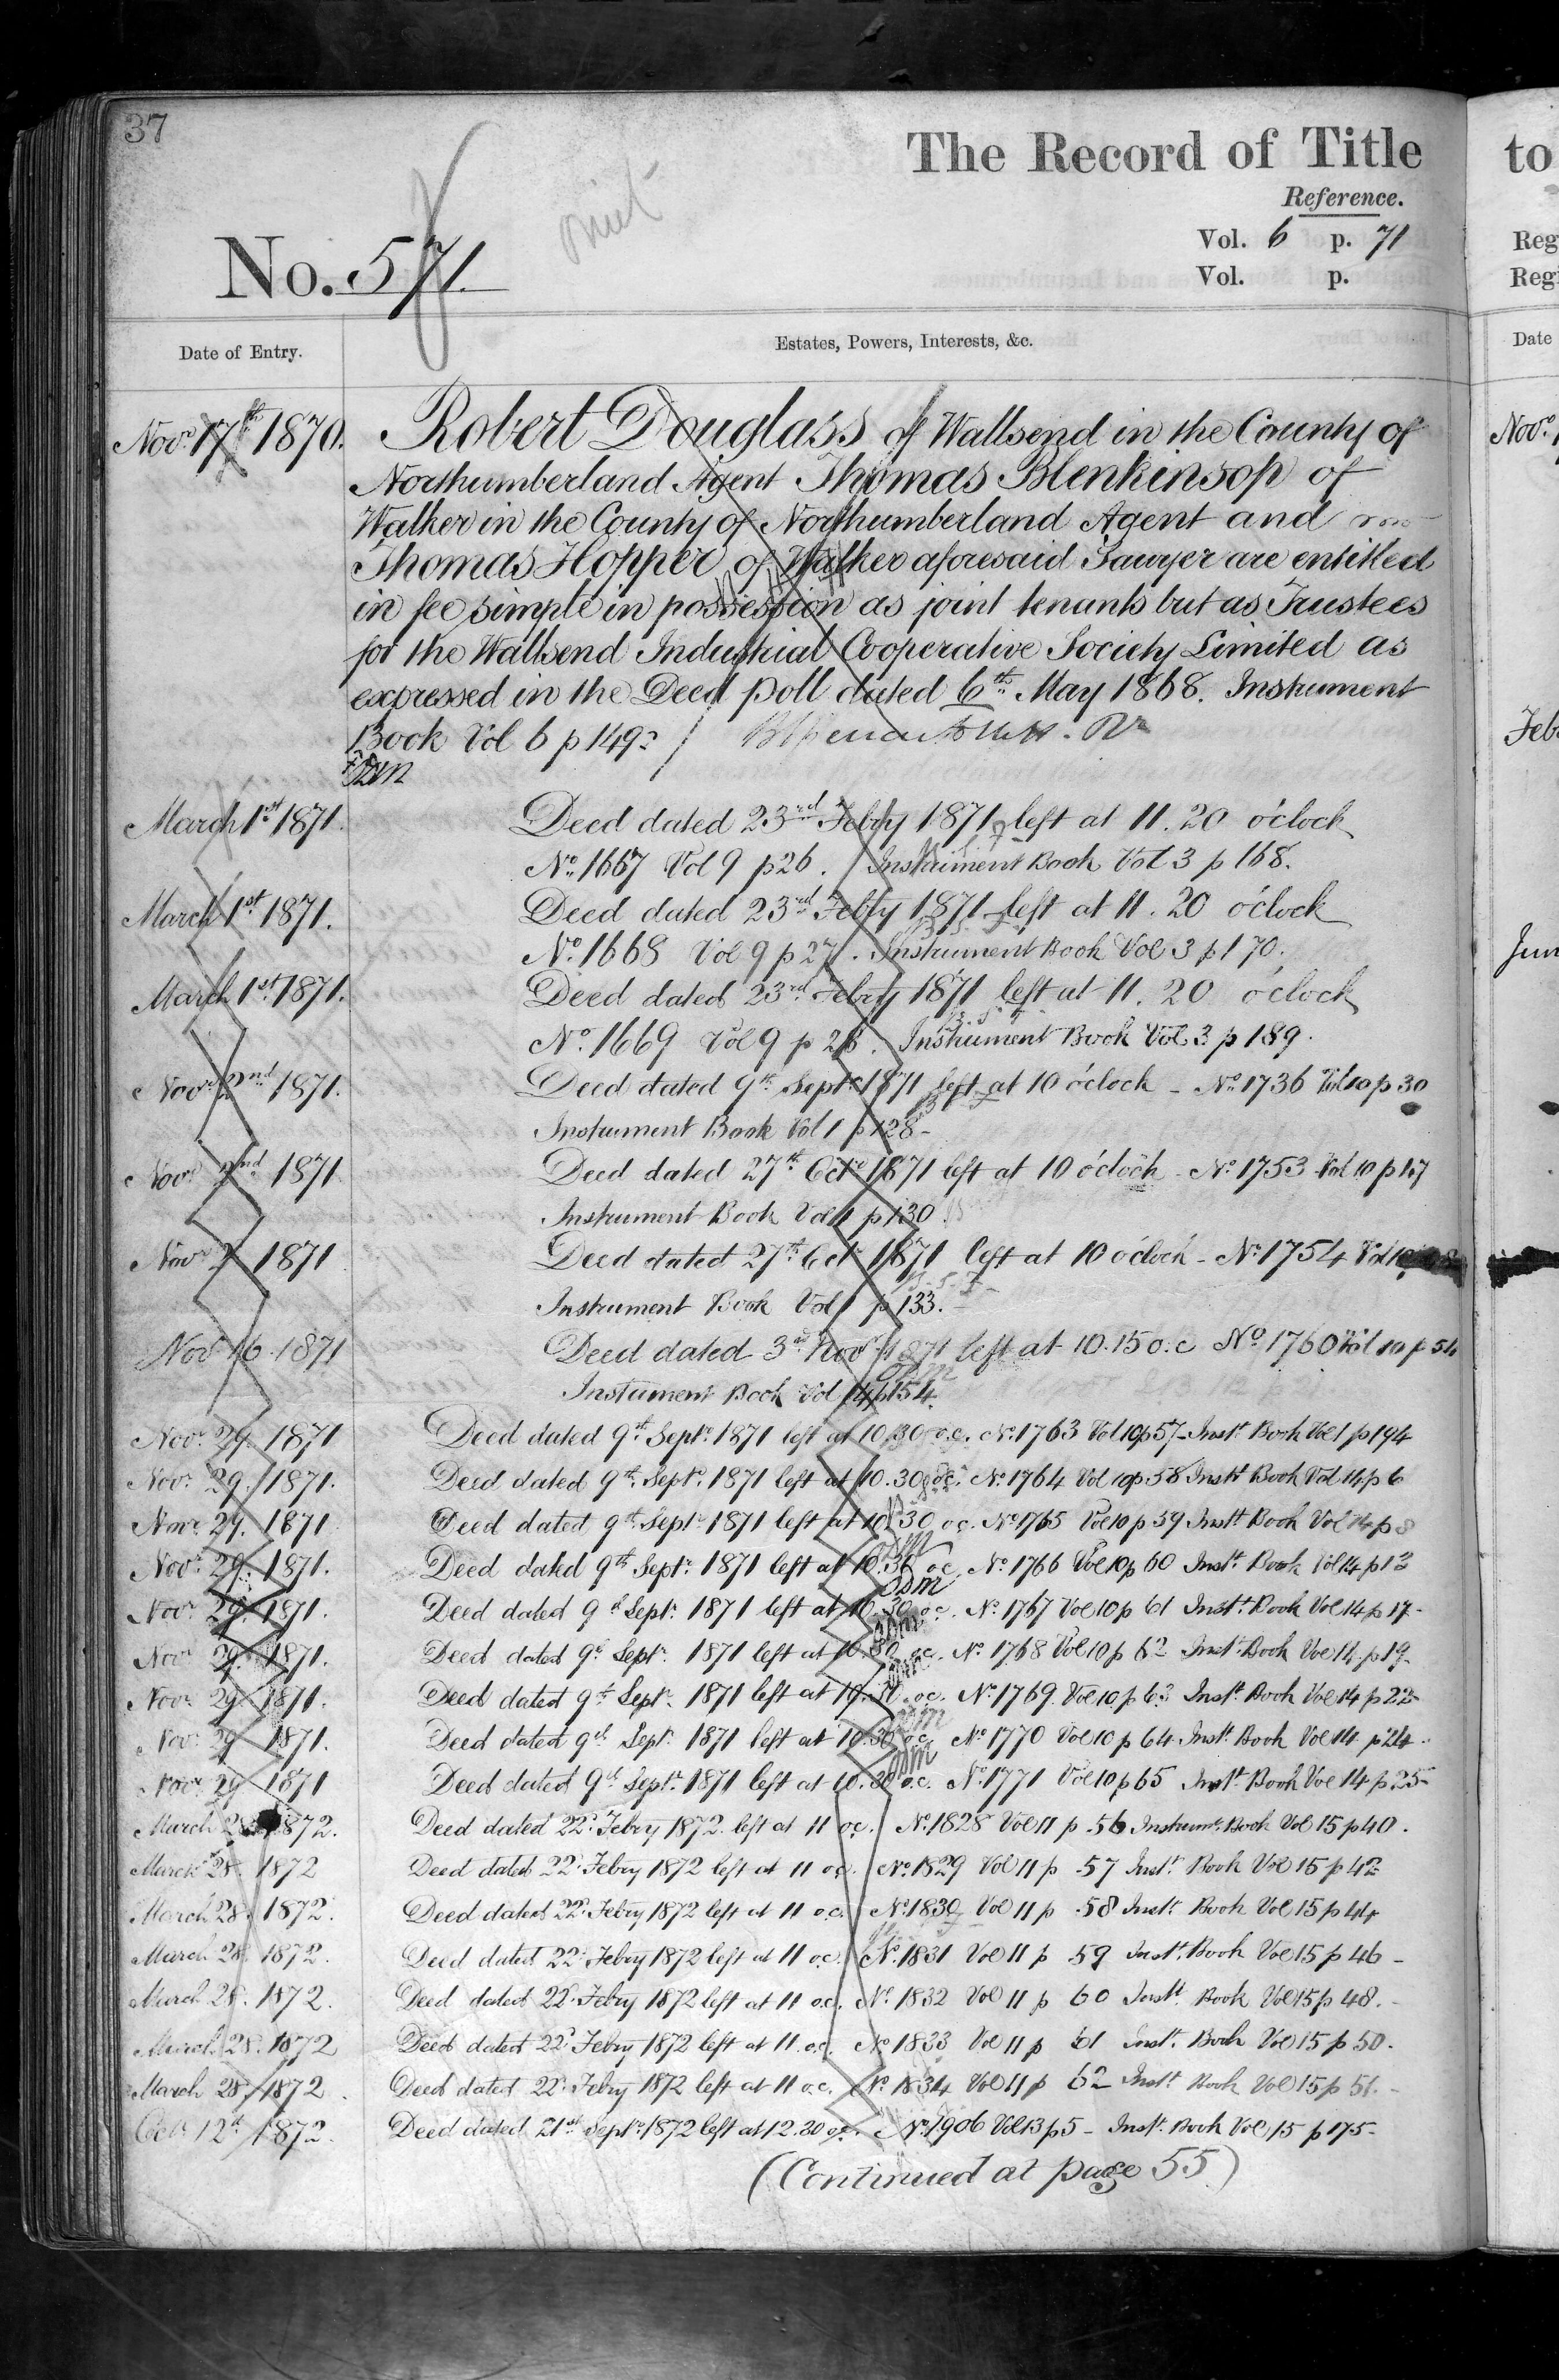 37
The Record of Title
Reference.
Vol. 6 p. 71
Vol. p.
No. 571.
Date of Entry.
Estates, Powers, Interests, &c.
Nov.r 17th 1870. Robert Douglass of Wallsend in the County of
Northumberland Agent Thomas Blenkinsop of
Walker in the County of Northumberland Agent and
Thomas Hopper of Walker aforesaid Sawyer are entitled
in fee simple in possession as joint tenants but as Trustees
for the Wallsend Industrial Cooperative Society Limited as
expressed in the Deed poll dated 6th May 1868. Instrument
Book Vol 6 p 149
March 1st 1871. Deed dated 23rd Febry 1871 left at 11.20 o'clock
No. 1667 Vol 9 p 26. Instrument Book Vol 3 p 168.
March 1st 1871. Deed dated 23rd Febry 1871 left at 11.20 o'clock
No. 1668 Vol 9 p 27. Instrument Book Vol 3 p 170.
March 1st 1871. Deed dated 23rd Febry 1871 left at 11.20 o'clock
No. 1669 Vol 9 p 28. Instrument Book Vol 3 p 189.
Novr 2nd 1871. Deed dated 9th Septr 1871 left at 10 o'clock - No. 1736 Vol 10 p 30
Instrument Book Vol 1 p 128-
Novr 2nd 1871 Deed dated 27th Octr 1871 left at 10 o'clock - No. 1753 Vol 10 p 47
Instrument Book Vol 1 p 130.
Novr 2 1871 Deed dated 27th Octr 1871 left at 10 o'clock - No. 1754 Vol 10
Instrument Book Vol 1 p 133.-
Nov 16. 1871 Deed dated 3rd Novr 1871 left at 10.15 o.c No. 1760 Vol 10 p 54
Instument Book Vol 14 p 154.
Novr 29. 1871 Deed dated 9th Septr 1871 left at 10.30 o.c. No. 1763 Vol 10 p 57 - Inst. Book Vol 1 p 194
Novr 29. 1871. Deed dated 9th Septr 1871 left at 10.30 o.c. No. 1764 Vol 10 p 58 Inst Book Vol 14 p 6
Novr 29. 1871 Deed dated 9th Septr 1871 left at 10.30 o.c. No. 1765 Vol 10 p 59 Inst Book Vol 14 p 8
Novr 29. 1871. Deed dated 9th Septr 1871 left at 10.30 o.c. No. 1766 Vol 10 p 60 Inst. Book Vol 14 p 13
Novr 29. 1871. Deed dated 9th Septr 1871 left at 10.30 o.c. No. 1767 Vol 10 p 61 Inst. Book Vol 14 p 17-
Novr 29. 1871. Deed dated 9th Septr 1871 left at 10.30 o.c. No. 1768 Vol 10 p 62 Inst. Book Vol 14 p 19-
Novr 29 1871. Deed dated 9th Septr 1871 left at 10.30 o.c. No. 1769 Vol 10 p 63 Inst. Book Vol 14 p 22-
Novr 29 1871. Deed dated 9th Septr 1871 left at 10.30 o.c. No. 1770 Vol 10 p 64 Inst. Book Vol 14 p 24.
Novr 29 1871 Deed dated 9th Septr 1871 left at 10.30 o.c. No. 1771 Vol 10 p 65 Inst. Book Vol 14 p 25-
March 28 1872. Deed dated 22d Febry 1872 left at 11 o.c. No. 1828 Vol 11 p 56 Instrumt. Book Vol 15 p 40.
March 28. 1872 Deed dated 22d Febry 1872 left at 11 o.c. No. 1829 Vol 11 p 57 Inst. Book Vol 15 p 42
March 28. 1872. Deed dated 22d Febry 1872 left at 11 o.c. No. 1830 Vol 11 p 58 Inst. Book Vol 15 p 44
March 28. 1872. Deed dated 22d Febry 1872 left at 11 o.c. No. 1831 Vol 11 p 59 Inst. Book Vol 15 p 46-
March 28. 1872. Deed dated 22d Febry 1872 left at 11 o.c. No. 1832 Vol 11 p 60 Inst. Book Vol 15 p 48.-
March 28. 1872 Deed dated 22d Febry 1872 left at 11 o.c. No. 1833 Vol 11 p 61 Inst. Book Vol 15 p 50.
March 28. 1872. Deed dated 22d Febry 1872 left at 11 o.c. No. 1834 Vol 11 p 62 Inst. Book Vol 15 p 51.-
Octr 12th 1872. Deed dated 21st Septr 1872 left at 12.30 o.c. No. 1906 Vol 13 p 5 - Inst. Book Vol 15 p 175-
(Continued at page 55)
to
Reg
Regi
Date
Novr
Feb
Jun